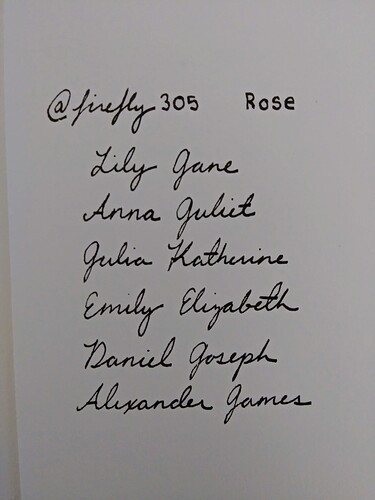 @firefly305 Rose
Lily Jane
Anna Juliet
Julia Katherine
Emily Elizabeth
Daniel Joseph
Alexander James